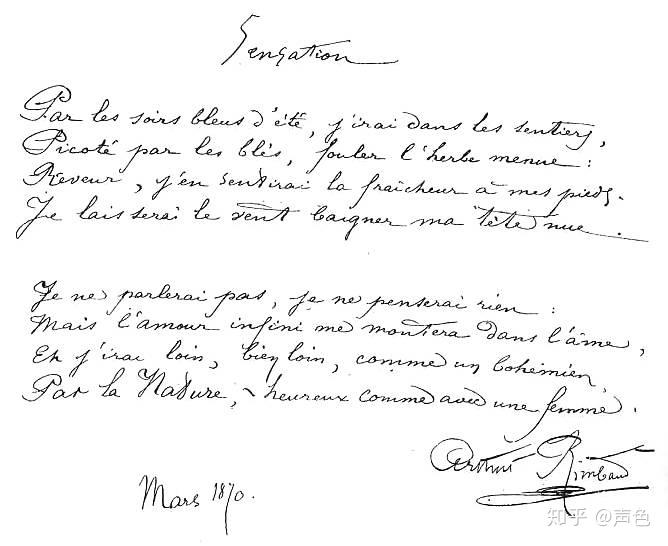 Sensation
Par les soirs bleus d'été, j'irai dans les sentiers,
Picoté par les blés, fouler l'herbe menue :
Rêveur, j'en sentirai la fraîcheur à mes pieds.
Je laisserai le vent baigner ma tête nue.
Je ne parlerai pas, je ne penserai rien :
Mais l'amour infini me montera dans l'âme,
Et j'irai loin, bien loin, comme un bohémien,
Par la Nature, - heureux comme avec une femme.
Arthur Rimbaud
Mars 1870.
知乎 @声色